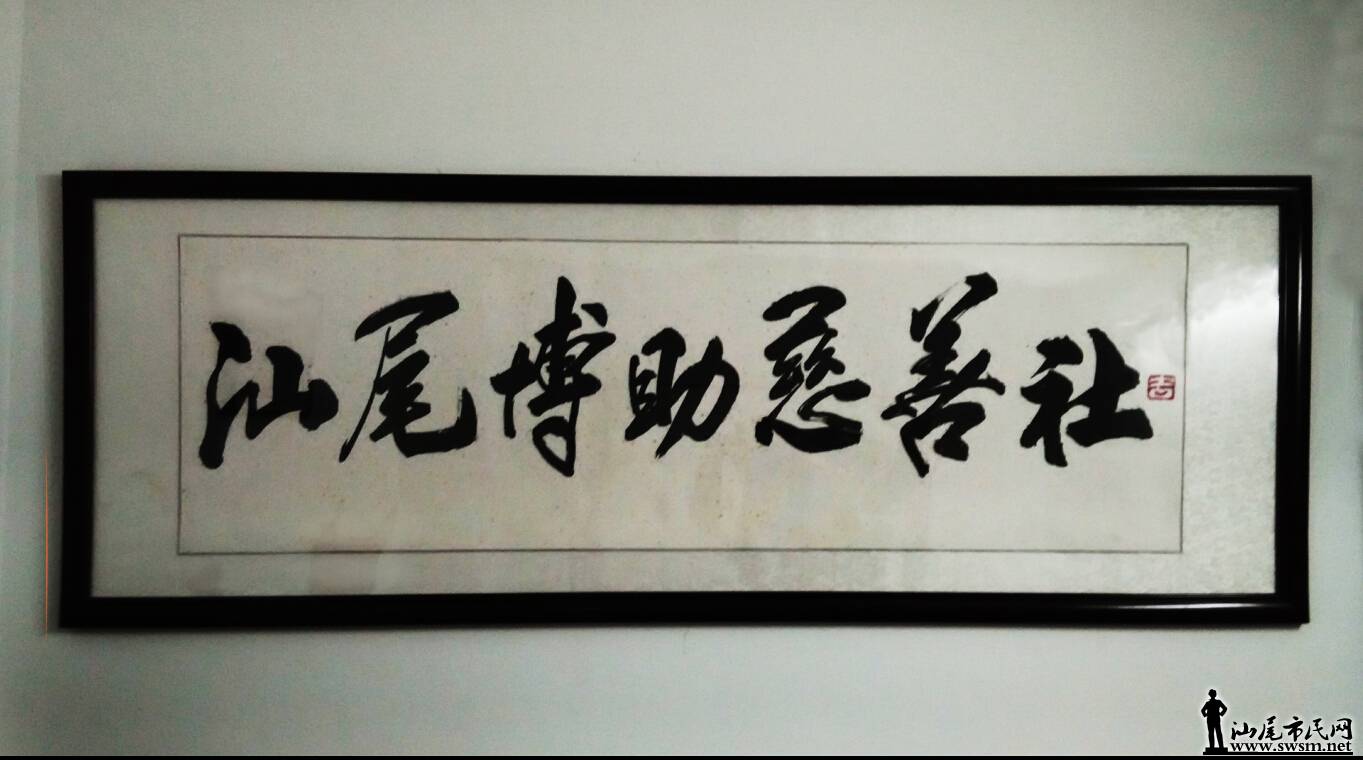 汕尾博助慈善社
汕尾市民网
www.swsm.net